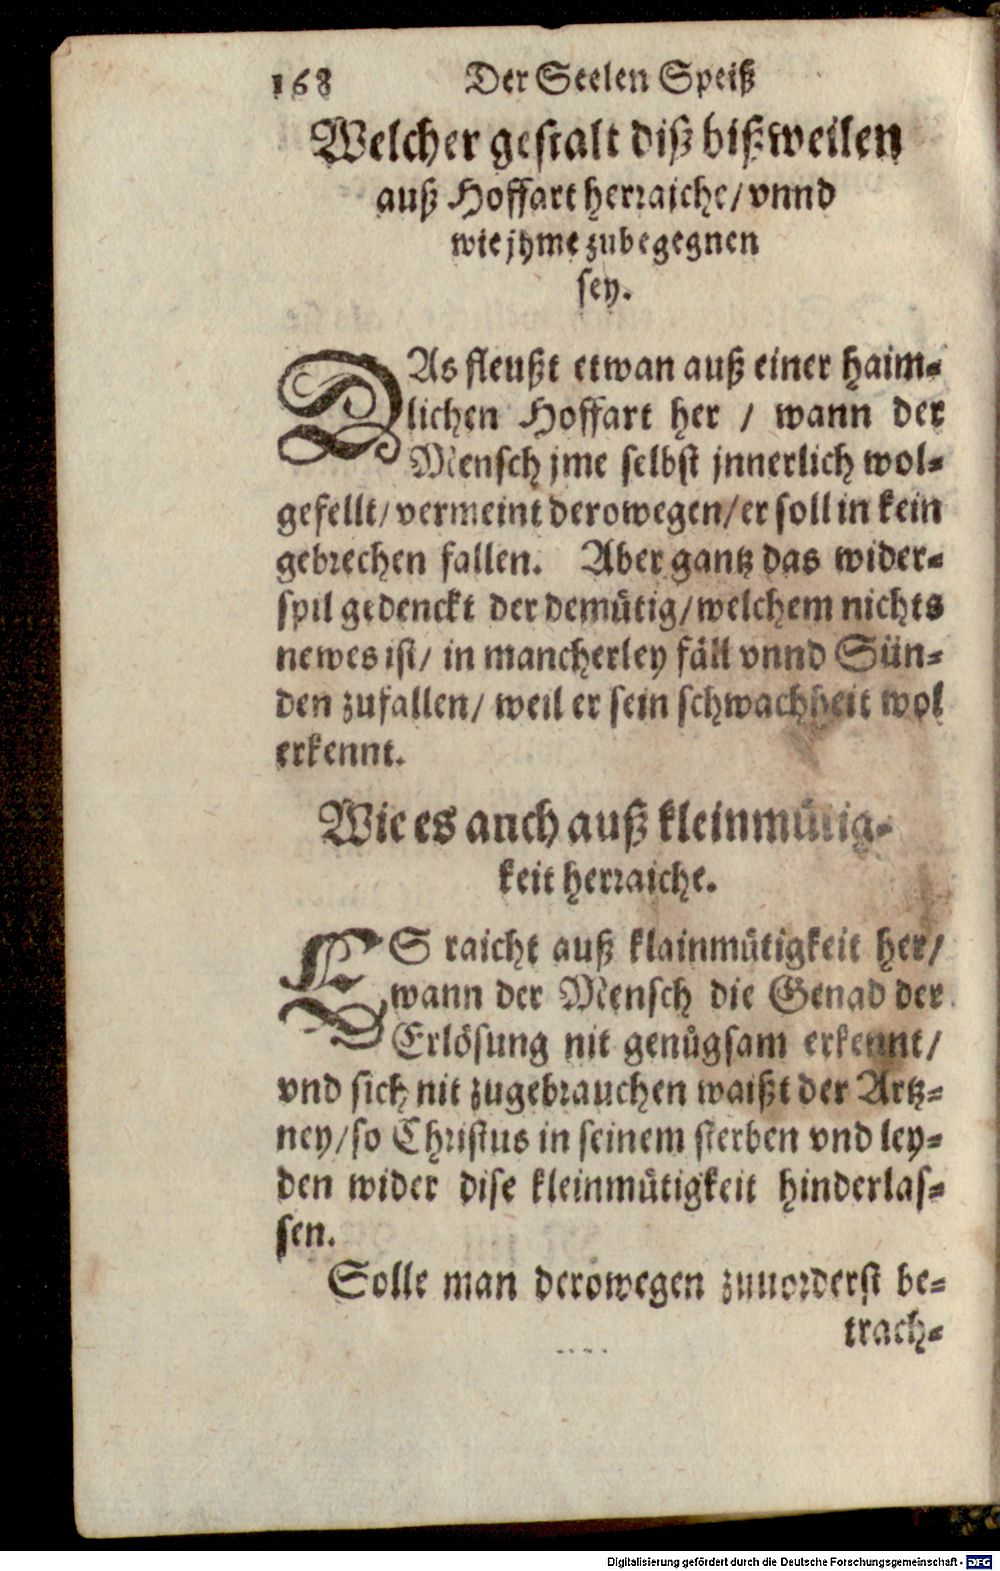 168 Der Seelen Speiß
Welcher gestalt diß bißweilen
auß Hoffart herraiche/ vnnd
wie jhme zubegegnen
sey.
DAs fleußt etwan auß einer haim-
lichen Hoffart her / wann der
Mensch jme selbst jnnerlich wol-
gefellt/ vermeint derowegen/ er soll in kein
gebrechen fallen. Aber gantz das wider-
spil gedenckt der demuͤtig/ welchem nichts
newes ist/ in mancherley faͤll vnnd Suͤn-
den zufallen/ weil er sein schwachheit wol
erkennt.
Wie es anch auß kleinmuͤtig-
keit herraiche.
ES raicht auß klainmuͤtigkeit her/
wann der Mensch die Genad der
Erloͤsung nit genuͤgsam erkennt/
vnd sich nit zugebrauchen waißt der Artz-
ney/ so Christus in seinem sterben vnd ley-
den wider dise kleinmuͤtigkeit hinderlas-
sen.
Solle man derowegen zuuorderst be-
trach-
Digitalisierung gefördert durch die Deutsche Forschungsgemeinschaft - DFG